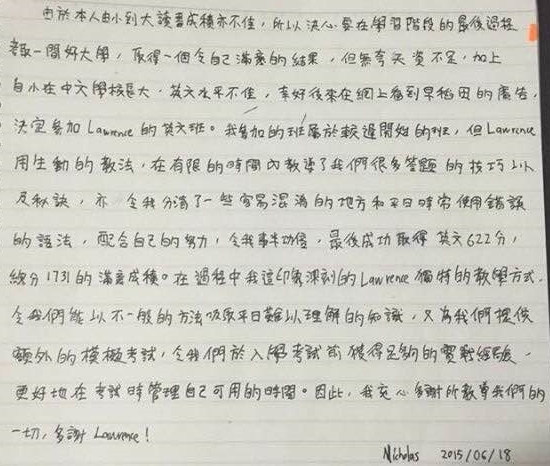 由於本人由小到大讀書成積亦不佳，所以決心要在學習階段的最後過程
考取一間好大學，取得一個令自己滿意的結果，但無奈天資不足，加上
自小在中文學校長大，英文水平不佳，幸好後來在網上看到早稻田的廣告，
決定參加Lawrence的英文班。我參加的班屬於較遲開始的班，但Lawrence
用生動的教法，在有限的時間內教導了我們很多答題的技巧以
及秘訣，亦令我分清了一些容易混淆的地方和平日時常使用錯誤
的語法，配合自己的努力，令我事半功倍，最後成功取得英文622分，
總分1731的滿意成積。在過程中我這印象深刻的Lawrence獨特的教學方式，
令我們能以不一般的方法吸收平日難以理解的知識，又為我們提供
額外的模擬考試，令我們於入學考試前獲得足夠的實戰經驗，
更好地在考試時管理自己可用的時間。因此，我衷心多謝所教導我們的
一切，多謝Lawrence！
Nicholas 2015/06/18